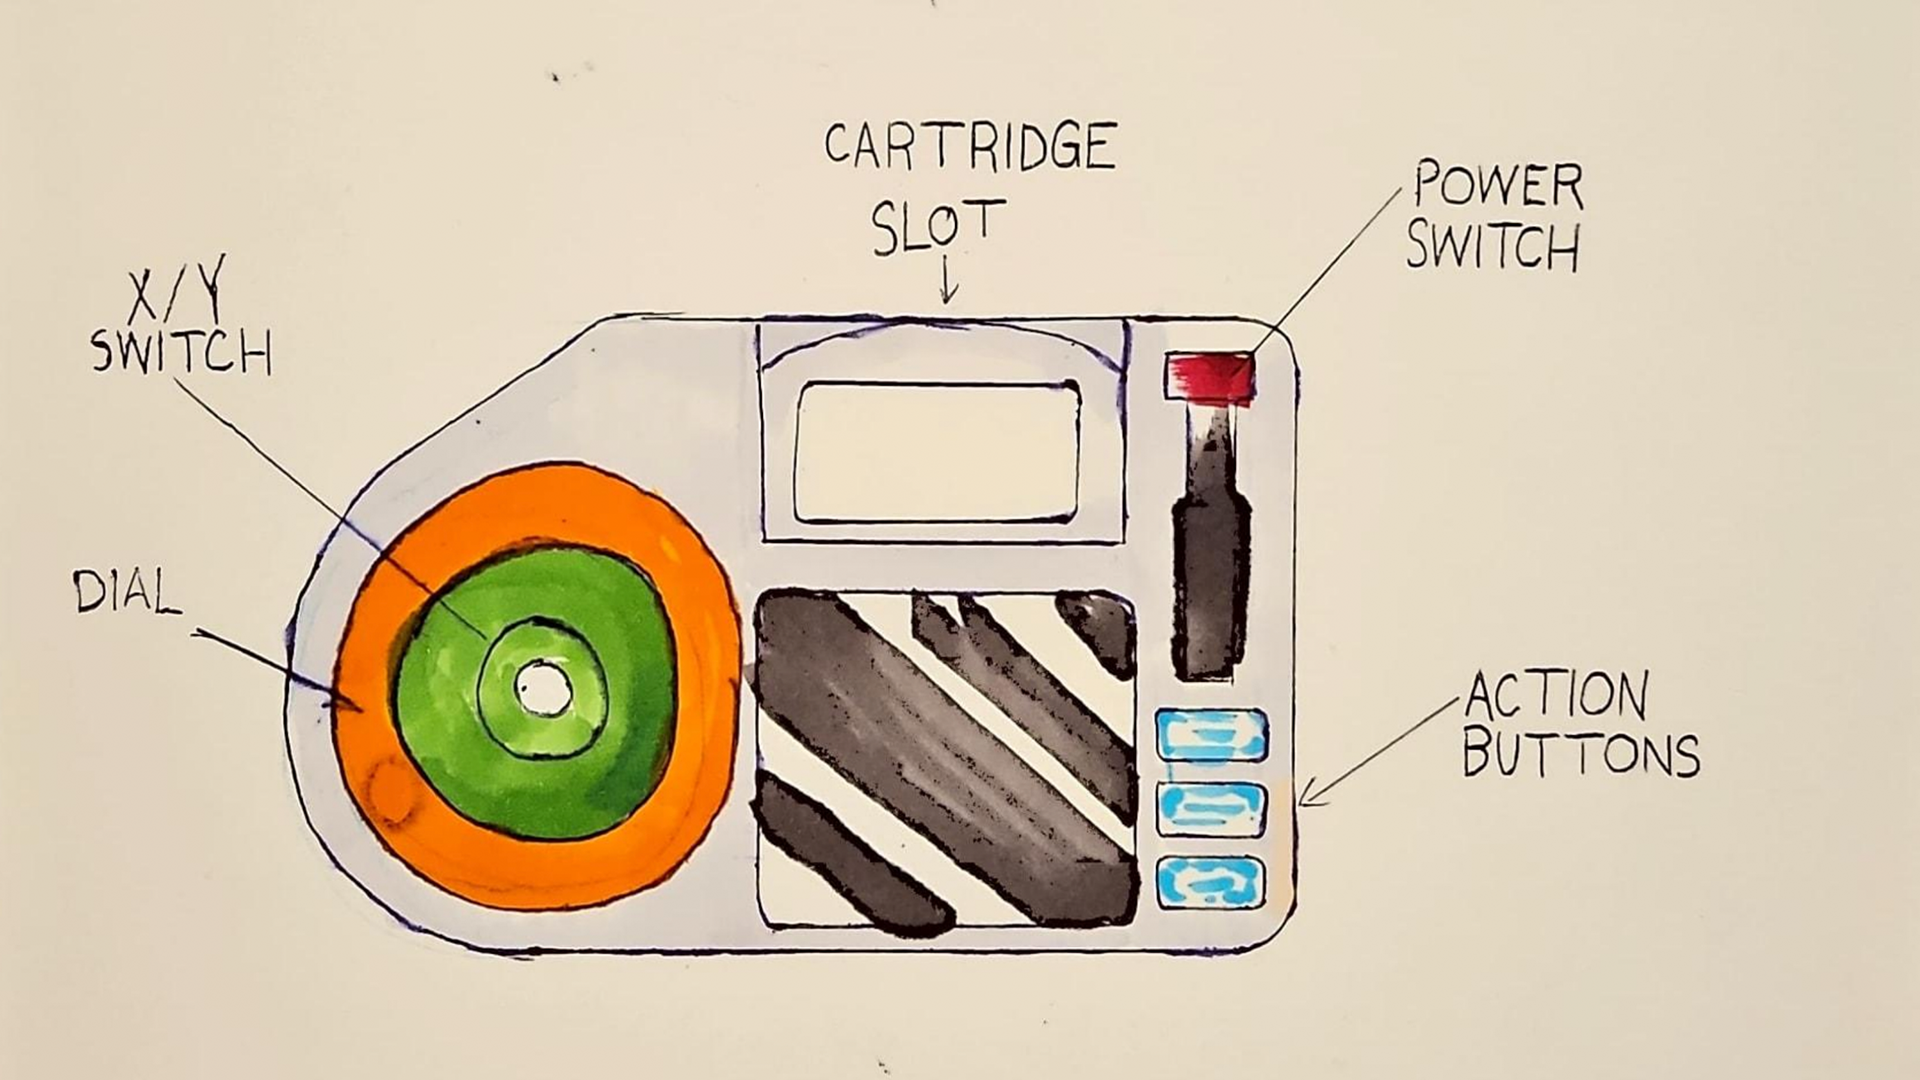 CARTRIDGE
SLOT
POWER
SWITCH
X/Y
SWITCH
DIAL
ACTION
BUTTONS